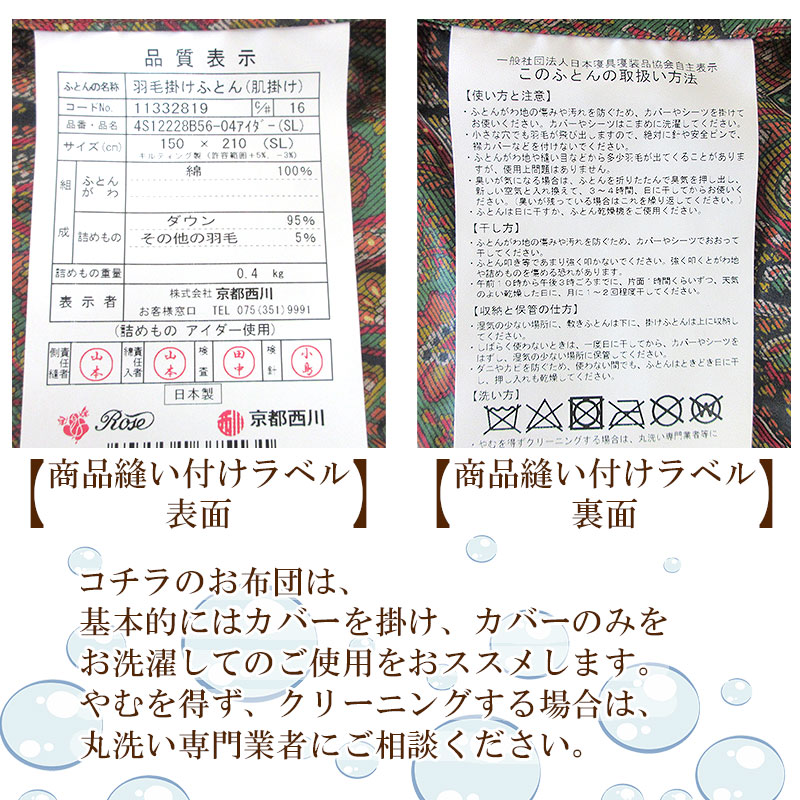 品質表示
ふとんの名称 羽毛掛けふとん(肌掛け)
コードNo. 11332819 C/# 16
品番・品名 4S12228B56-04アイダー(SL)
サイズ(cm) 150 × 210 (SL)
キルティング製 (許容範囲+5%、-3%)
組成 ふとんがわ 綿 100%
詰めもの ダウン 95%
その他の羽毛 5%
詰めもの重量 0.4 kg
表示者 株式会社 京都西川
お客様窓口 TEL 075(351)9991
(詰めもの アイダー使用)
側縫責任者 山本 縫入責任者 山本 検査 田中 検針 小島
日本製
Rose 京都西川
一般社団法人日本寝具寝装品協会自主表示
このふとんの取扱い方法
【使い方と注意】
・ふとんがわ地の傷みや汚れを防ぐため、カバーやシーツを掛けて
お使いください。カバーやシーツはこまめに洗濯してください。
・小さな穴でも羽毛が飛び出しますので、絶対に針や安全ピンで、
襟カバーなどを付けないでください。
・ふとんがわ地や縫い目などから多少羽毛が出てくることがありま
すが、使用上問題はありません。
・臭いが気になる場合は、ふとんを折りたたんで臭気を押し出し、
新しい空気と入れ換えて、3～4時間、日に干してからお使いく
ださい。(臭いが残っている場合はこれを繰り返してください。)
・ふとんは日に干すか、ふとん乾燥機をご使用ください。
【干し方】
・ふとんがわ地の傷みや汚れを防ぐため、カバーやシーツでおおって
干してください。
・ふとん叩き等であまり強く叩かないでください。強く叩くとがわ地
や詰めものを傷める恐れがあります。
・午前10時から午後3時ごろまでに、片面1時間くらいずつ、天気
のよい乾燥した日に、月に1～2回程度干してください。
【収納と保管の仕方】
・湿気の少ない場所に、敷きふとんは下に、掛けふとんは上に収納し
てください。
・しばらく使わないときは、一度日に干してから、カバーやシーツを
はずし、湿気の少ない場所に保管してください。
・ダニやカビを防ぐため、使わない間でも、ふとんはときどき日に干
し、押し入れも乾燥してください。
【洗い方】
・やむを得ずクリーニングする場合は、丸洗い専門業者に
【商品縫い付けラベル表面】
【商品縫い付けラベル裏面】
コチラのお布団は、
基本的にはカバーを掛け、カバーのみを
お洗濯してのご使用をおススメします。
やむを得ず、クリーニングする場合は、
丸洗い専門業者にご相談ください。